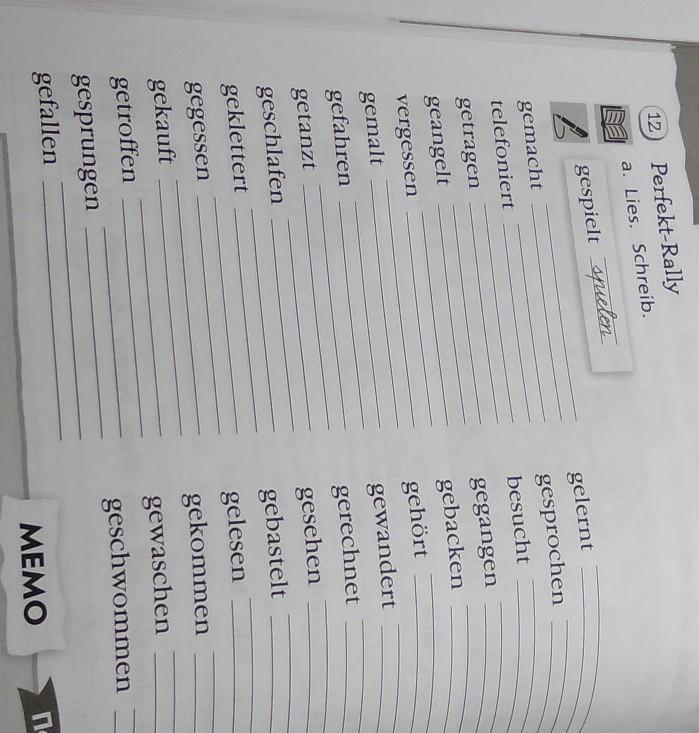 12. Perfekt-Rally
a. Lies. Schreib.
gespielt spielen
gemacht
telefoniert
getragen
geangelt
vergessen
gemalt
gefahren
getanzt
geschlafen
geklettert
gegessen
gekauft
getroffen
gesprungen
gefallen
gelernt
gesprochen
besucht
gegangen
gebacken
gehört
gewandert
gerechnet
gesehen
gebastelt
gelesen
gekommen
gewaschen
geschwommen
MEMO